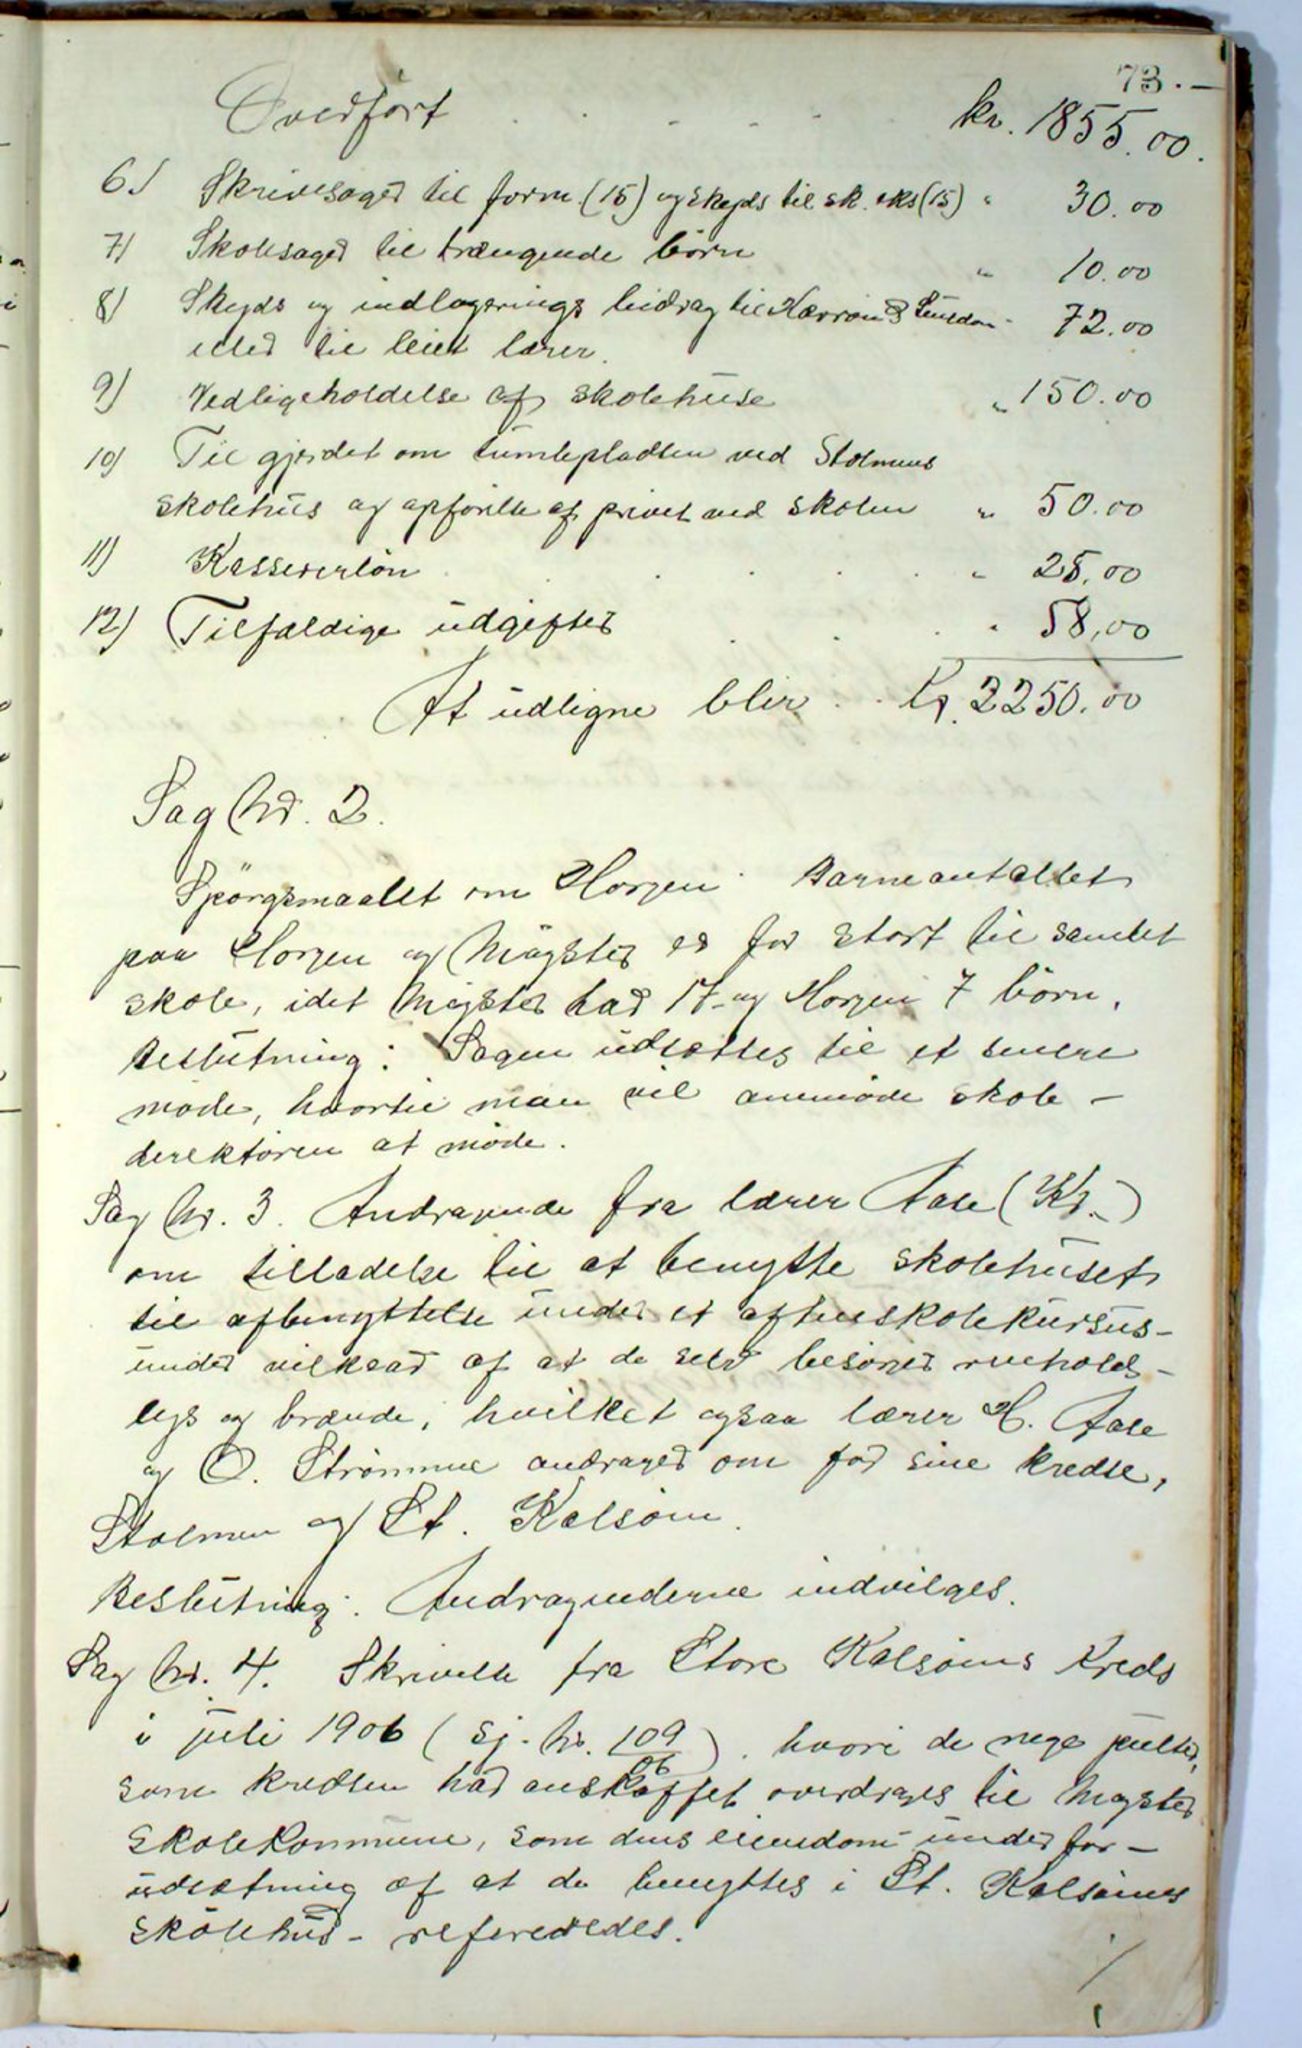 73. —
Overført . . . . . kr. 1855.00.
6.) Skrivesager til form. (15) og skyds til sk. eks (15) " 30.00
7) Skolesager til trængende børn " 10.00
8) Skyds og indlogerings bidrag til
eller til leiet lærer. 72.00
9) Vedligeholdelse af skolehuse " 150.00
10) Til gjerdet om tumlepladsen ved Stolmens
skolehus og opførelse af privet ved skolen " 50.00
11) Kassererløn . . . . " 25.00
12) Tilfældige udgifter . . . " 58,00
At udligne blir . . Kr. 2250.00
Sag Nr. 2.
Spörgsmaalet om Horgen. Barneantallet
paa Horgen og Møgster er for stort til samlet
skole, idet Møgster har 17 og Horgen 7 børn.
Beslutning: Sagen udsættes til et senere
møde, hvortil man vil anmode skole-
direktøren at møde.
Sag Nr. 3. Andragende fra lærer Aase (Kr.)
om tilladelse til at benytte skolehuset
til afbenyttelse under et aftenskolekursus-
under vilkaar af at de selv besørger renhold-
lys og brænde, hvilket ogsaa lærer H. Aase
og O. Strømme andrager om for sine kredse,
Stolmen og St. Kalsøen.
Beslutning: Andragenderne indvilges.
Sag Nr. 4. Skrivelse fra Store Kalsøens Kreds
i juli 1906 (Sj. Nr. 109/06). hvori de nye pulter,
som kredsen har anskaffet overdrages til Møgster
skolekommune, som dens eiendom under for-
udsætning af at de benyttes i St. Kalsøens
skolehus - refereredes.
./.